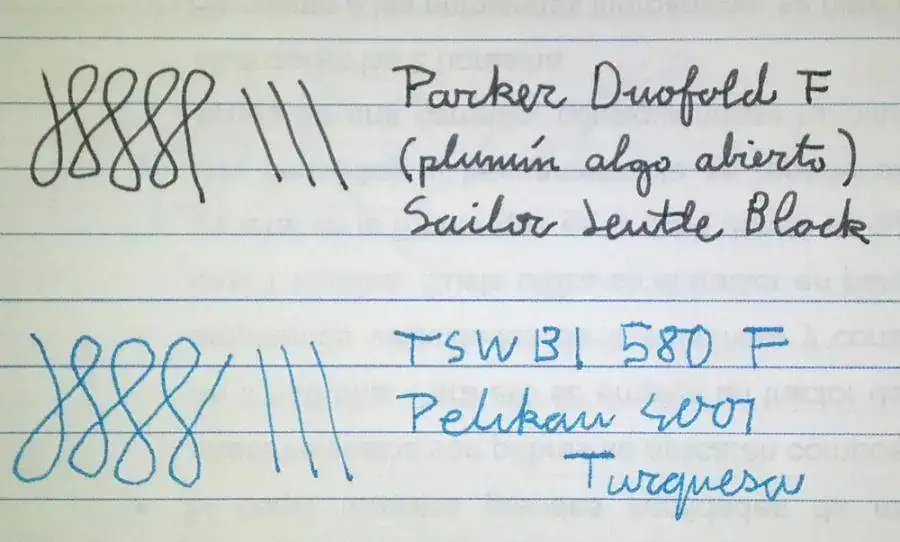 Parker Duofold F
(plumín algo abierto)
Sailor Jentle Black
TSWBI 580 F
Pelikan 4001
Turquesa